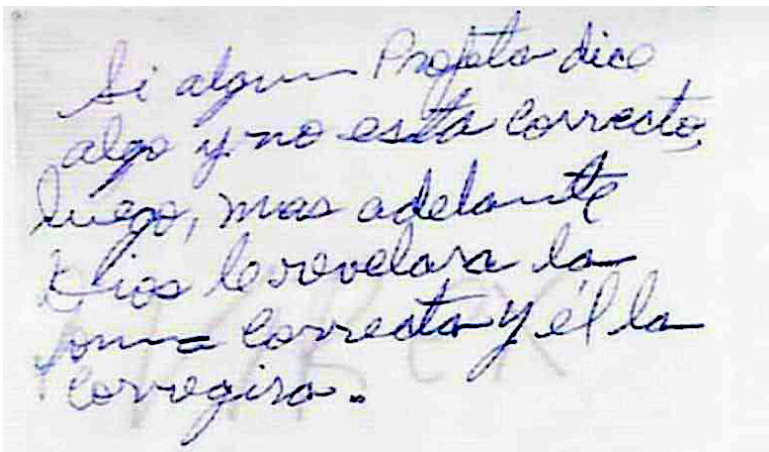 Si algun Profeta dice
algo y no esta correcto,
luego, mas adelante
Dios le revelara la
forma correcta y él la
corregira.